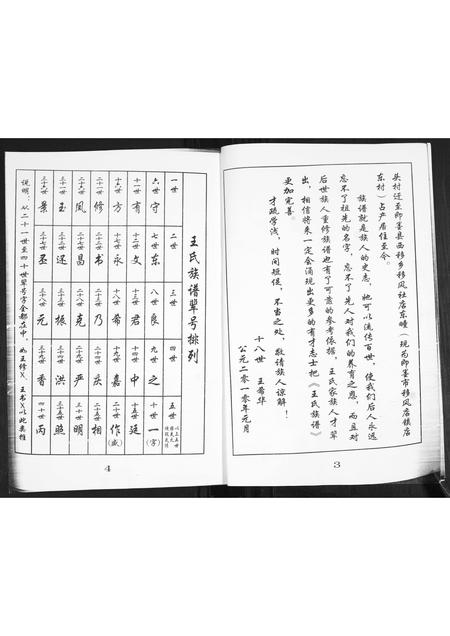 头村迁至即墨县西移乡移风社店东疃（现为即墨市移风店镇店
东村）占产居住至今。
族谱就是族人的史志，她可以流传百世，使我们后人永远
忘不了祖先的名字，忘不了先人对我们的养育之恩，而且对
后世族人重修族谱也有了可靠的参考依据，王氏家族人才辈
出，相信将来一定会涌现出更多的有才志士把《王氏族谱》
更加完善。
才疏学浅，时间短促，不当之处，敬请族人谅解！
十八世 王希华
公元二〇一〇年元月
3
王氏族谱辈号排列
一世 二世 三世 四世 五世
六世 守 七世 东 八世 良 九世 之 十世 一（字）
十一世 有 十二世 文 十三世 君 十四世 中 十五世 廷
十六世 方 十七世 永 十八世 希 十九世 嘉 二十世 作（盛）
二十一世 修 二十二世 书 二十三世 乃 二十四世 庆 二十五世 相
二十六世 风 二十七世 昌 二十八世 克 二十九世 严 三十世 明
三十一世 玉 三十二世 还 三十三世 振 三十四世 洪 三十五世 照
三十六世 景 三十七世 丕 三十八世 元 三十九世 香 四十世 丙
说明：从二十一世至四十世辈号字全都在中，如王修X、王书X以此类推
4